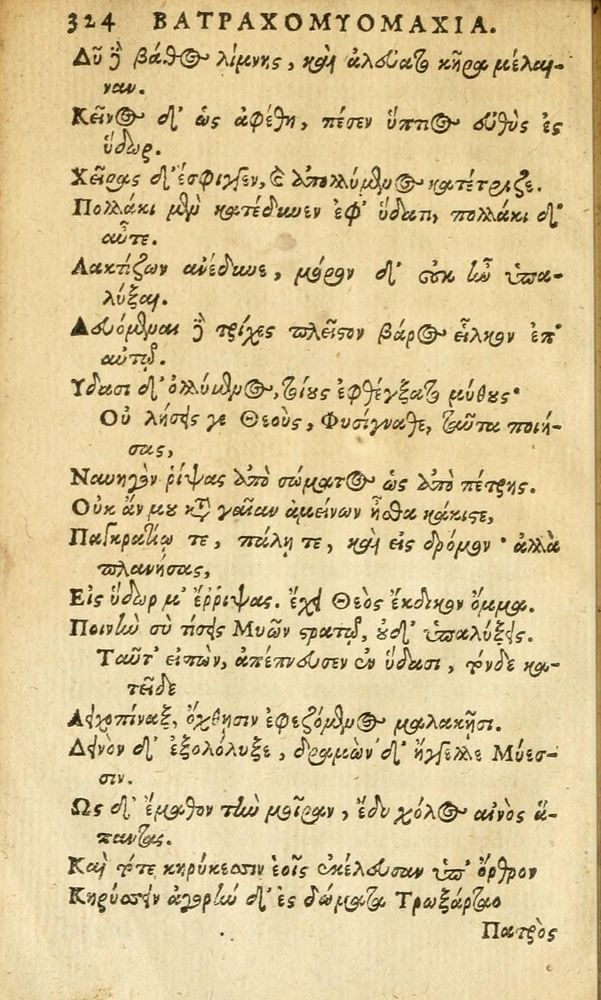 324 ΒΑΤΡΑΧΟΜΥΟΜΑΧΙΑ.
Δῦ ϳ βάθος λίμνης, καὶ ἀλεύατο κῆρα μέλαι-
ναν.
Κεῖνος δ' ὡς ἀφέθη, πέσεν ὕππος εὐθὺς ἐς
ὕδωρ.
Χεῖρας δ' ἔσφιγγεν, καὶ ἀπολλύμενος κατέτριζε.
Πολλάκι μὲν κατέδυνεν ἐφ' ὕδατι, πολλάκι δ'
αὖτε.
Λακτίζων ἀνέδυνε, μόρον δ' οὐκ ἦν ὑπα-
λύξαι.
Δευόμεναι δὲ τρίχες πλεῖστον βάρος εἷλκον ἐπ'
αὐτῷ.
Υδασι δ' ὀλλύμενος, τοίους ἐφθέγξατο μύθους·
Οὐ λήσεις γε Θεοὺς, Φυσίγναθε, ταῦτα ποιή-
σας,
Ναυηγὸν ῥίψας ἀπὸ σώματος ὡς ἀπὸ πέτρης.
Οὐκ ἄν μου κατὰ γαῖαν ἀμείνων ἦσθα κάκιστε,
Παγκρατίῳ τε, πάλῃ τε, καὶ εἰς δρόμον· ἀλλὰ
πλανήσας,
Εἰς ὕδωρ μ' ἔρριψας. ἔχει Θεὸς ἔκδικον ὄμμα.
Ποινὴν σὺ τίσεις Μυῶν στρατῷ, οὐδ' ὑπαλύξεις.
Ταῦτ' εἰπὼν, ἀπέπνευσεν ἐν ὕδασι, τόνδε κα-
τεῖδε
Λειχοπίναξ, ὄχθησιν ἐφεζόμενος μαλακῇσι.
Δεινὸν δ' ἐξολόλυξε, δραμὼν δ' ἤγγελλε Μύεσ-
σιν.
Ως δ' ἔμαθον τὴν μοῖραν, ἔδυ χόλος αἰνὸς ἅ-
παντας.
Καὶ τότε κηρύκεσσιν ἑοῖς ἐκέλευσαν ὑπ' ὄρθρον
Κηρύσσειν ἀγορὴν δ' ἐς δώματα Τρωξάρταο
Πατρὸς